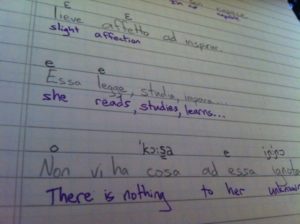 ɛ ɛ
Lieve affetto ad inspirar...
slight affection
e e
Essa legge, studia, impara...
she reads, studies, learns...
o 'kɔ:sa e
Non vi ha cosa ad essa ignota
There is nothing to her unknown